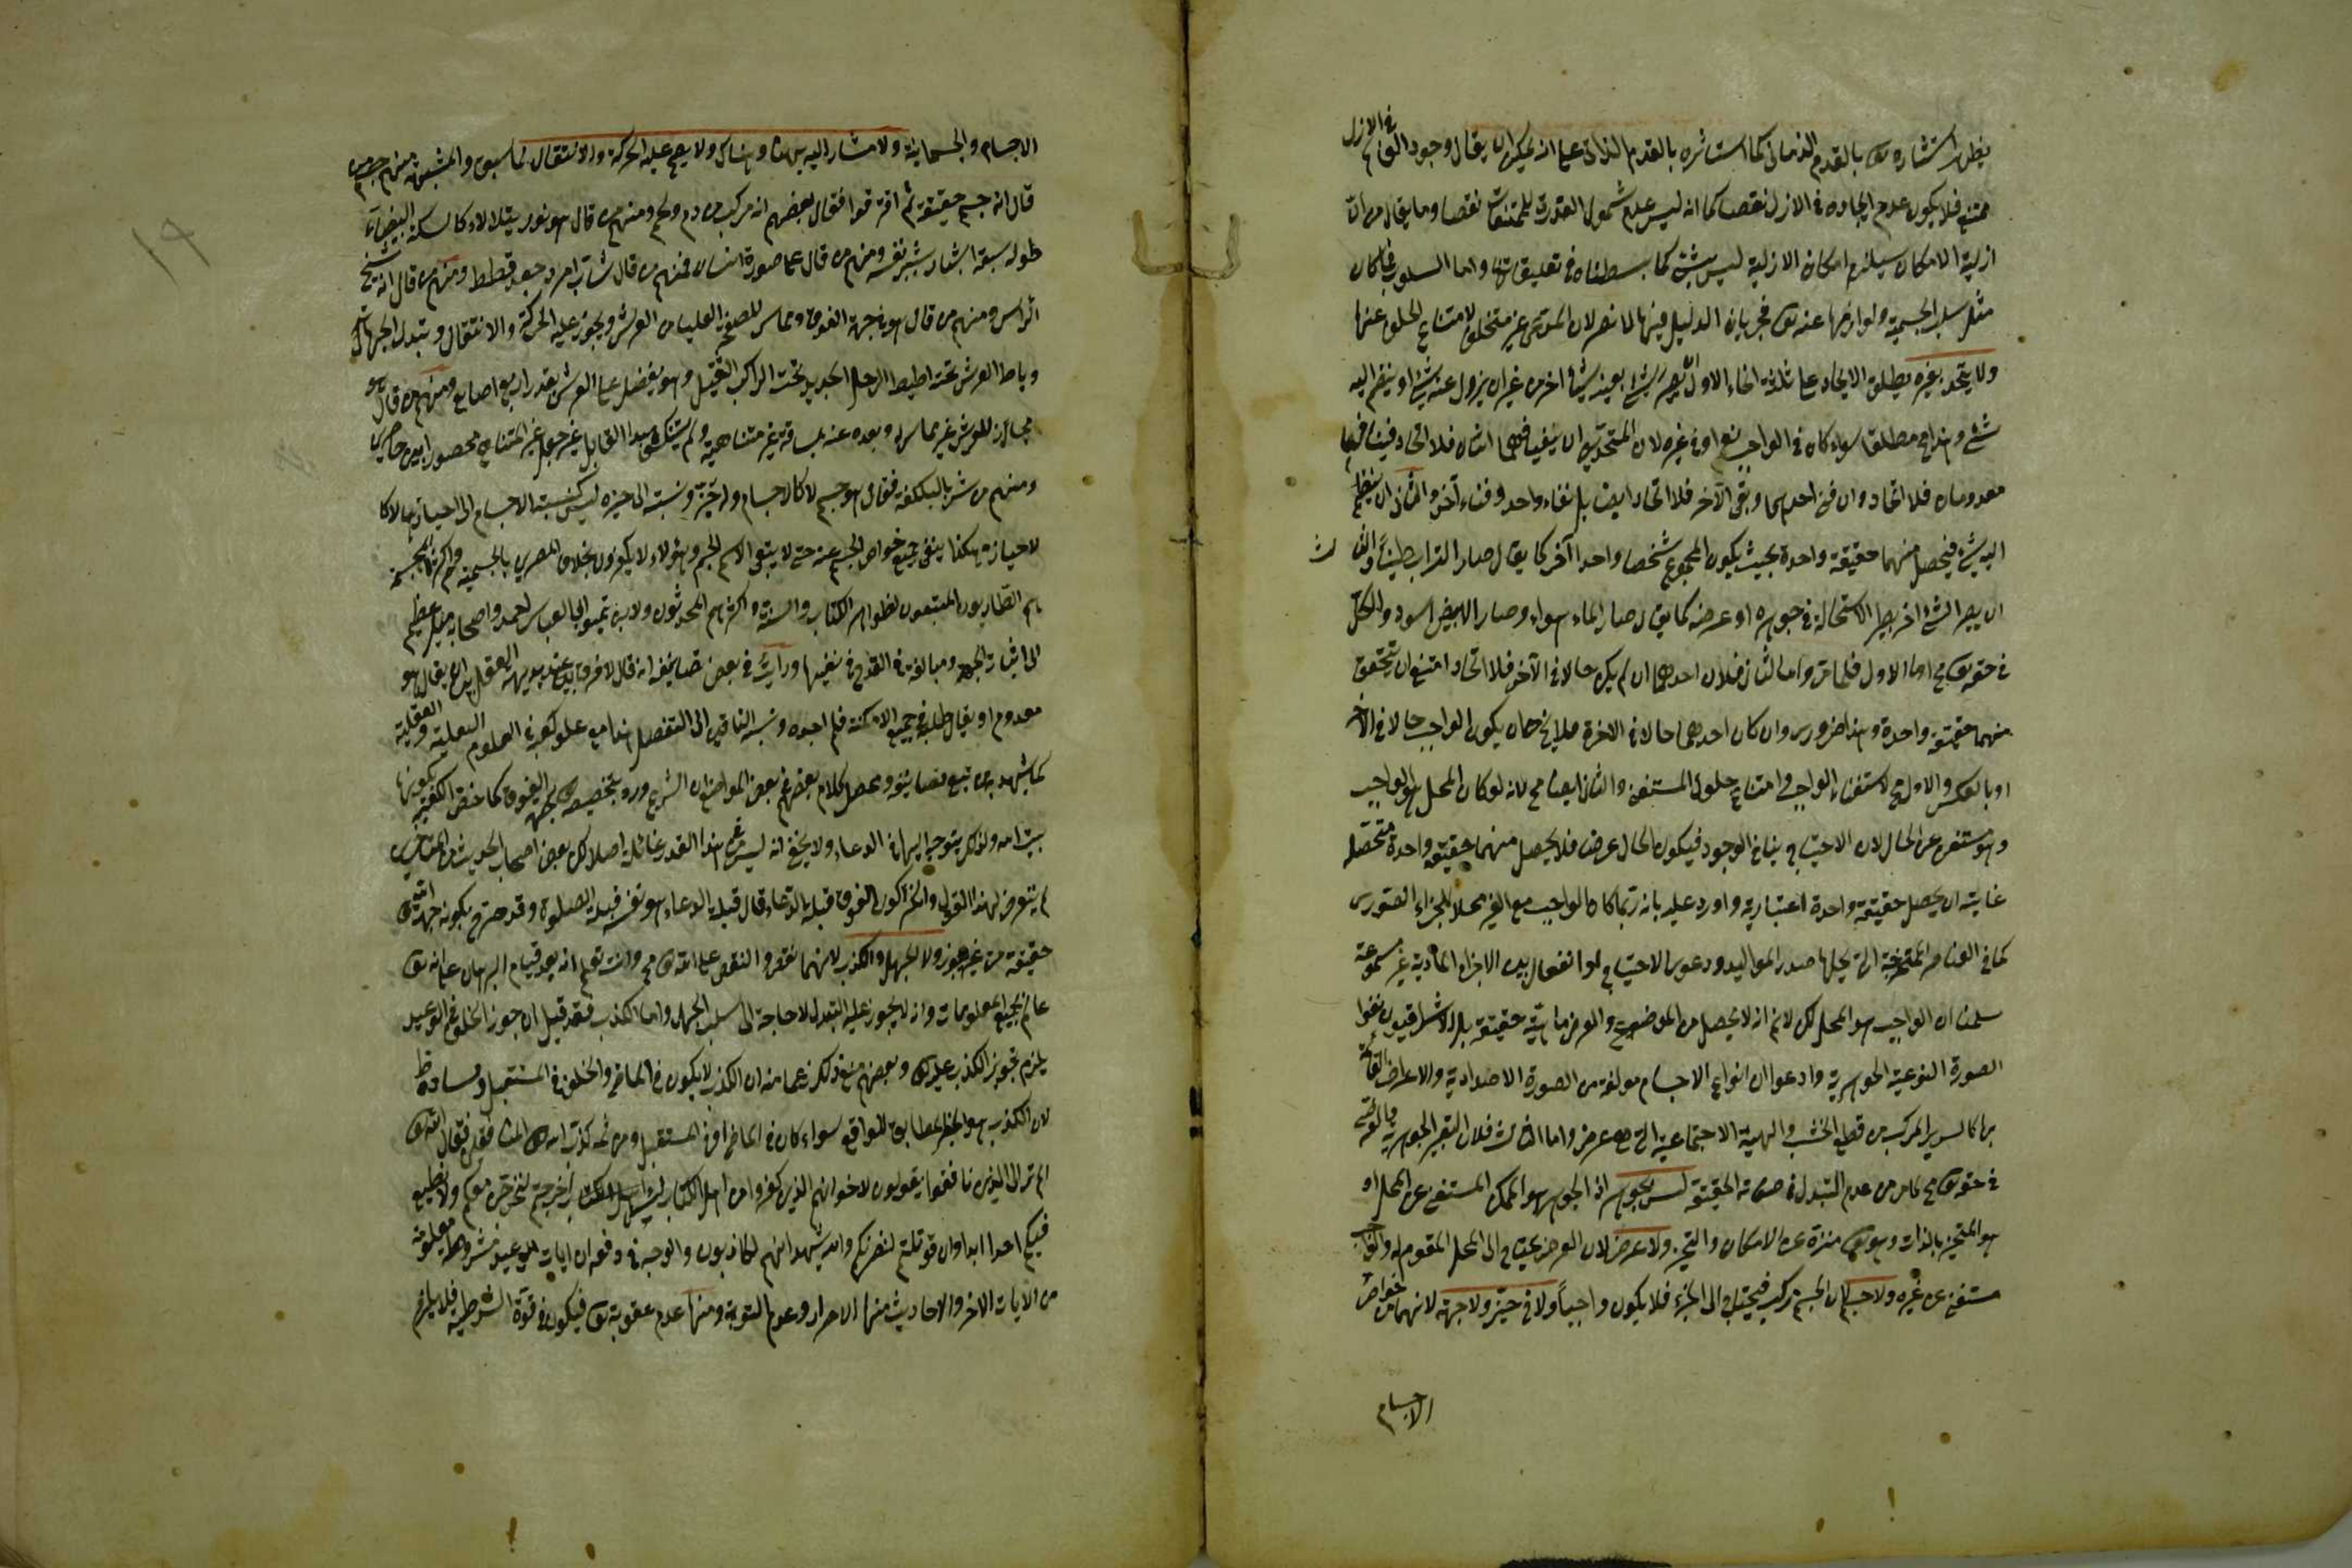 يظهر استيثاره تع بالقدم الزماني كما استاثره بالقدم الذاتي على انه يمكن ان يقال وجود العالم في الازل
ممتنع فلا يكون عدم ايجاده في الازل نقصا كما انه ليس عدم شمول القدرة للممتنعات نقصا وما يقال من ان
ازلية الامكان يستلزم امكان الازلية ليس بشئ كما بسطناه في تعليقاتنا واما السلوب فما كان
مثل سلب الجسمية ولوازمها عنه تع فجريان الدليل فيها لا يضر لان المدعى غير متخلف لامتناع الخلو عنها
ولا يتحد بغيره يطلق الاتحاد على ثلثة انحاء الاول ان يصير شئ بعينه شيئا اخر من غير ان يزول عنه شئ او ينضم اليه
شئ وهذا مح مطلقا سواء كان في الواجب تع او في غيره لان المتحدين ان بقيا فهما اثنان فلا اتحاد وان فنيا فهما
معدومان فلا اتحاد وان فنى احدهما وبقى الآخر فلا اتحاد ايضا بل بقاء واحد وفناء آخر والثاني ان ينضم
اليه شئ فيحصل منهما حقيقة واحدة بحيث يكون المجموع شخصا واحدا آخر كما يقال صار التراب طينا والثالث
ان يصير الشئ اخر بطريق الاستحالة في جوهره او عرضه كما يقال صار الماء هواء وصار الابيض اسود والكل
في حقه تع مح اما الاول فلما مر واما الثاني فلان احدهما ان لم يكن حالا في الآخر فلا اتحاد امتنع ان يتحقق
منهما حقيقة واحدة وهذا ضروري وان كان احدهما حالا في الاخر فلا يخ اما ان يكون الواجب حالا في الآخر
او بالعكس والاول مح لاستغناء الواجب وامتناع حلول المستغني والثاني ايضا مح لانه لو كان المحل هو الواجب
وهو مستغن عن الحال لان الاحتياج ينافي الوجود فيكون الحال عرضا فلا يحصل منهما حقيقة واحدة متحصلة
غايته ان يحصل حقيقة واحدة اعتبارية واورد عليه بانه ربما كان الواجب مع الغير محلا للجزء الصوري
كما في العناصر الممتزجة التي يحلها صور المواليد ودعوى الاحتياج والانفعال بين الاجزاء المادية غير مسموعة
سلمنا ان الواجب هو المحل لكن لا نم انه لا يحصل من الموضوع والعرض ماهية حقيقية بل الاشراقيون نفوا
الصورة النوعية الجوهرية وادعوا ان انواع الاجسام مولفة من الصورة الامتدادية والاعراض القائمة
بها كالسرير المركب من قطع الخشب والهيئة الاجتماعية التي هي عرض واما الثالث فلان التغير الجوهرية والعرضية
في حقه تع مح لما مر من عدم التبدل في صفاته الحقيقية ليس بجوهر اذ الجوهر هو الممكن المستغني عن المحل او
هو المتحيز بالذات وهو تع منزه عن الامكان والتحيز ولا عرض لان العرض يحتاج الى المحل المقوم له والواجب
مستغن عن غيره ولا جسم لان الجسم مركب فيحتاج الى الجزء فلا يكون واجبا ولا في حيز ولا جهة لانهما من خواص
الاجسام
الاجسام والجسمانية ولا مشار اليه بهنا وهناك ولا يصح عليه الحركة والانتقال لما سبق والمشبهة منهم من
قال انه جسم حقيقة ثم افترقوا فقال بعضهم انه مركب من دم ولحم ومنهم من قال هو نور يتلالا كالسبكة البيضاء
طوله سبعة اشبار بشبر نفسه ومنهم من قال على صورة انسان فمنهم من قال شاب امرد جعد قطط ومنهم من قال انه شيخ
الراس ومنهم من قال هو في جهة الفوق ومماس للصفحة العليا من العرش ويجوز عليه الحركة والانتقال وتبدل الجهات
وياط العرش تحته اطيط الرحل الجديد تحت الراكب الثقيل وهو يفضل على العرش بقدر اربع اصابع ومنهم من قال هو
محاذ للعرش غير مماس له وبعده عنه بمسافة غير متناهية ولم يستنكف هذا القائل عن جعل غير المتناهي محصورا بين حاصرين
ومنهم من تستر بالبلكفة فقال هو جسم لا كالاجسام وله حيز ونسبته الى حيزه ليس كنسبة الاجسام الى احيازها لا كا
لاحياز وهكذا ينفي جميع خواص الجسم عنه حتى لا يبقى الا اسم الجسم وهؤلاء لا يكفرون بخلاف المصرحين بالجسمية واكثر المجسمة
هم الظاهريون المتبعون لظواهر الكتاب والسنة واكثرهم المحدثون ولابن تيمية ابي العباس احمد واصحابه ميل عظيم
الى اثبات الجهة ومبالغة في القدح في نفيها ورايت في بعض تصانيفه انه قال لا فرق عند بديهة العقل بين ان يقال هو
معدوم او يقال طلبته في جميع الامكنة فلم اجده ونسب النافين الى التعطيل هذا مع علو كعبه في العلوم النقلية والعقلية
كما يشهد به من تتبع تصانيفه ومحصل كلام بعضهم في بعض المواضع ان الشرع ورد بتخصيصه تع بجهة الفوق كما خصص الكعبة بكونها
بيت الله ولذلك يتوجه اليها في الدعاء ولا يخفى انه ليس في هذا القدر غائلة اصلا لكن بعض اصحاب الحديث من المتاخرين
لم يتعرض لهذا القول وانكر كون الفوق قبلة الدعاء قال قبلة الدعاء هو نفسه قبلة الصلوة وقد صرح بكونه جهة الله
حقيقة من غير تجوز ولا الجهل والكذب لانهما نقص والنقص على الله تع مح وانت تعلم انه بعد قيام البرهان على انه تع
عالم بجميع المعلومات وانه لا يجوز عليه التبدل لا حاجة الى سلب الجهل واما الكذب فقد قيل ان جوز الخلف في الوعيد
يلزم تجويز الكذب عليه تع وبعضهم منع ذلك زعما منه ان الكذب لا يكون في الماضي والخلف في المستقبل وفساده ظ
لان الكذب هو الخبر الغير المطابق للواقع سواء كان في الماضي او في المستقبل ومن ثمه كذب الله تع المنافقين بقوله تع
الم تر الى الذين نافقوا يقولون لاخوانهم الذين كفروا من اهل الكتاب لئن اخرجتم لنخرجن معكم ولا نطيع
فيكم احدا ابدا وان قوتلتم لننصرنكم والله يشهد انهم لكاذبون والوجه في دفعه ان ايات الوعيد مشروطة بشروط معلومة
من الايات الاخر والاحاديث منها الاصرار وعدم التوبة ومنها عدم عفوه تع فيكون في قوة الشرطية فلا يلزم